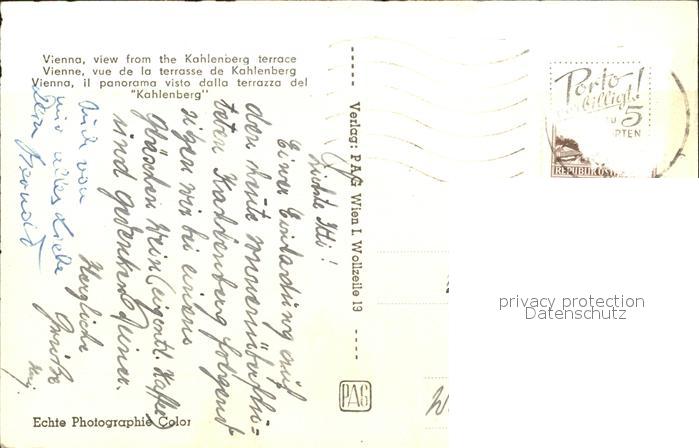 Vienna, view from the Kahlenberg terrace
Vienne, vue de la terrasse de Kahlenberg
Vienna, il panorama visto dalla terrazza del
"Kahlenberg"
Liebste
Einer Einladung auf
den heute
Kahlenberg folgend
sitzen wir bei einem
Gläschen Wein (eigentl. Kaffee)
und gedenken Deiner.
Herzliche
Grüße
Auch von
mir alles Liebe
Verlag: PAG Wien I. Wollzeile 19
PAG
Echte Photographie Color
Porto
billigt!
5
REPUBLIK
privacy protection
Datenschutz